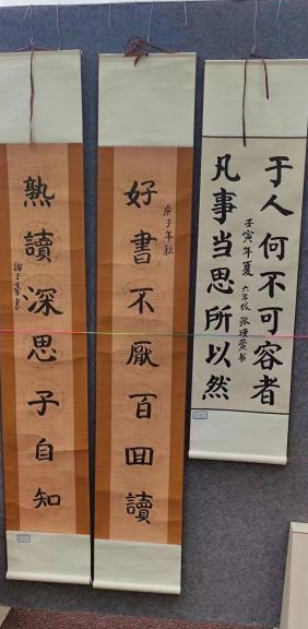 于人何不可容者
凡事当思所以然
壬寅年夏 六年级 张瑾萱书
好書不厭百回讀
庚子年秋
熟讀深思子自知